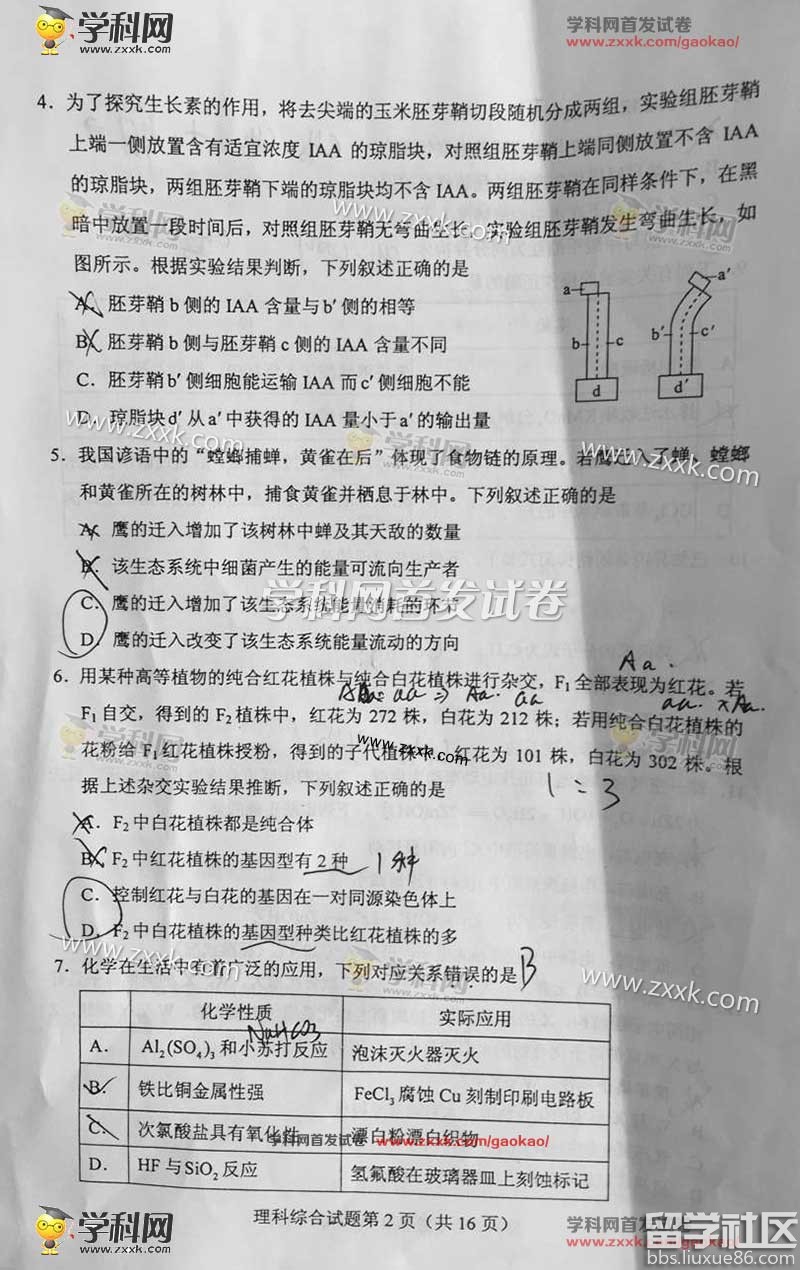 学科网
www.zxxk.com
学科网首发试卷
www.zxxk.com/gaokao/
4．为了探究生长素的作用，将去尖端的玉米胚芽鞘切段随机分成两组，实验组胚芽鞘
上端一侧放置含有适宜浓度 IAA 的琼脂块，对照组胚芽鞘上端同侧放置不含 IAA
的琼脂块，两组胚芽鞘下端的琼脂块均不含 IAA。两组胚芽鞘在同样条件下，在黑
暗中放置一段时间后，对照组胚芽鞘无弯曲生长，实验组胚芽鞘发生弯曲生长，如
图所示。根据实验结果判断，下列叙述正确的是
A．胚芽鞘 b 侧的 IAA 含量与 b′侧的相等
B．胚芽鞘 b 侧与胚芽鞘 c 侧的 IAA 含量不同
C．胚芽鞘 b′侧细胞能运输 IAA 而 c′侧细胞不能
D．琼脂块 d′从 a′中获得的 IAA 量小于 a′的输出量
a
b
c
d
a′
b′
c′
d′
5．我国谚语中的“螳螂捕蝉，黄雀在后”体现了食物链的原理。若鹰迁入了蝉、螳螂
和黄雀所在的树林中，捕食黄雀并栖息于林中。下列叙述正确的是
A．鹰的迁入增加了该树林中蝉及其天敌的数量
B．该生态系统中细菌产生的能量可流向生产者
学科网首发试卷
C．鹰的迁入增加了该生态系统能量消耗的环节
D．鹰的迁入改变了该生态系统能量流动的方向
Aa.
6．用某种高等植物的纯合红花植株与纯合白花植株进行杂交，F₁全部表现为红花。若
aa ⇒ Aa. aa
aa. × Aa.
F₁自交，得到的 F₂植株中，红花为 272 株，白花为 212 株；若用纯合白花植株的
花粉给 F₁红花植株授粉，得到的子代植株中，红花为 101 株，白花为 302 株。根
据上述杂交实验结果推断，下列叙述正确的是
1 : 3
A．F₂中白花植株都是纯合体
B．F₂中红花植株的基因型有 2 种 1种
C．控制红花与白花的基因在一对同源染色体上
D．F₂中白花植株的基因型种类比红花植株的多
7．化学在生活中有着广泛的应用，下列对应关系错误的是 B
化学性质 实际应用
NaHCO3
A． Al₂(SO₄)₃和小苏打反应 泡沫灭火器灭火
B． 铁比铜金属性强 FeCl₃腐蚀 Cu 刻制印刷电路板
C． 次氯酸盐具有氧化性 漂白粉漂白织物
学科网首发试卷 www.zxxk.com/gaokao/
D． HF 与 SiO₂反应 氢氟酸在玻璃器皿上刻蚀标记
理科综合试题第 2 页（共 16 页）
学科网
www.zxxk.com
学科网首发试卷
www.zxxk.com/gaokao/
留学社区
bbs.liuxue86.com